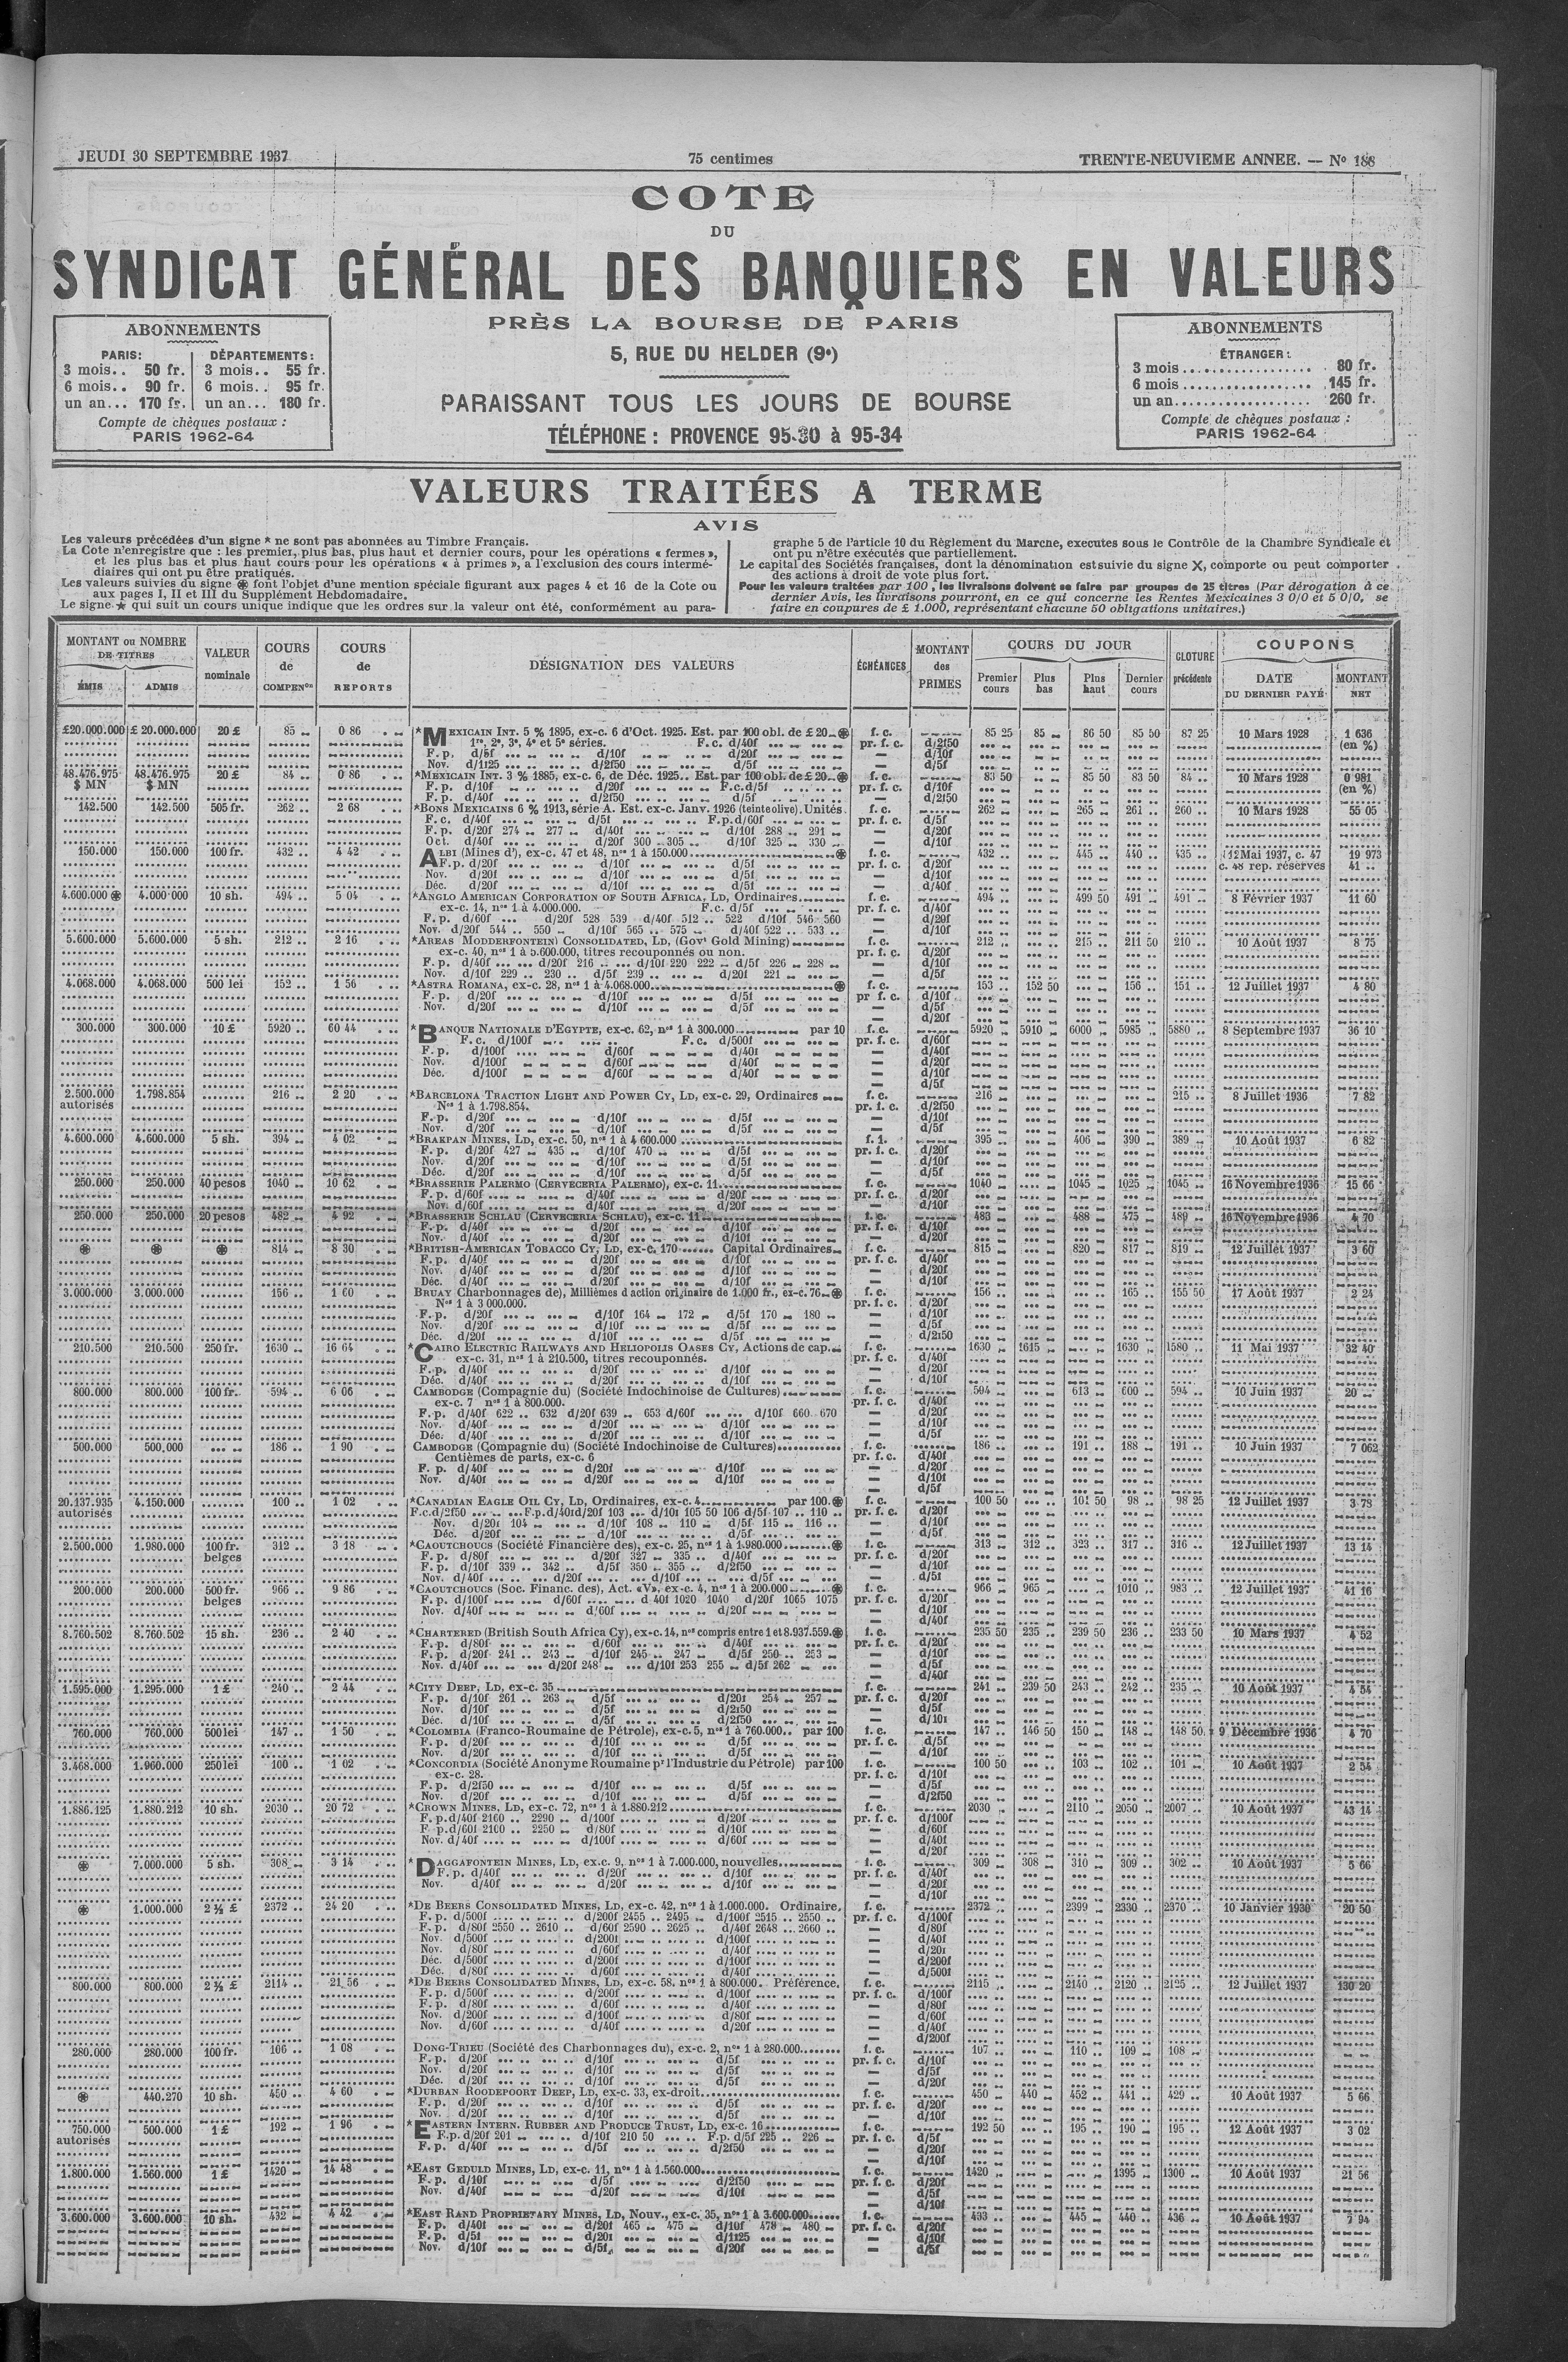 JEUDI 30 SEPTEMBRE 1937
75 centimes
TRENTE-NEUVIEME ANNEE. — N° 188
COTE
DU
SYNDICAT GÉNÉRAL DES BANQUIERS EN VALEURS
PRÈS LA BOURSE DE PARIS
5, RUE DU HELDER (9e)
PARAISSANT TOUS LES JOURS DE BOURSE
TÉLÉPHONE : PROVENCE 95-30 à 95-34
ABONNEMENTS
PARIS: DÉPARTEMENTS:
3 mois.. 50 fr. 3 mois.. 55 fr.
6 mois.. 90 fr. 6 mois.. 95 fr.
un an... 170 fr. un an... 180 fr.
Compte de chèques postaux :
PARIS 1962-64
ABONNEMENTS
ÉTRANGER :
3 mois .................. 80 fr.
6 mois .................. 145 fr.
un an.................... 260 fr.
Compte de chèques postaux :
PARIS 1962-64
VALEURS TRAITÉES A TERME
AVIS
Les valeurs précédées d'un signe * ne sont pas abonnées au Timbre Français.
La Cote n'enregistre que : les premier, plus bas, plus haut et dernier cours, pour les opérations « fermes »,
et les plus bas et plus haut cours pour les opérations « à primes », a l'exclusion des cours intermé-
diaires qui ont pu être pratiqués.
Les valeurs suivies du signe ⊛ font l'objet d'une mention spéciale figurant aux pages 4 et 16 de la Cote ou
aux pages I, II et III du Supplément Hebdomadaire.
Le signe ★ qui suit un cours unique indique que les ordres sur la valeur ont été, conformément au para-
graphe 5 de l'article 10 du Règlement du Marche, executes sous le Contrôle de la Chambre Syndicale et
ont pu n'être exécutés que partiellement.
Le capital des Sociétés françaises, dont la dénomination est suivie du signe X, comporte ou peut comporter
des actions à droit de vote plus fort.
Pour les valeurs traitées par 100, les livraisons doivent se faire par groupes de 25 titres (Par dérogation à ce
dernier Avis, les livraisons pourront, en ce qui concerne les Rentes Mexicaines 3 0/0 et 5 0/0, se
faire en coupures de £ 1.000, représentant chacune 50 obligations unitaires.)
MONTANT ou NOMBRE DE TITRES
ÉMIS ADMIS
VALEUR nominale
COURS de COMPENon
COURS de REPORTS
DÉSIGNATION DES VALEURS
ÉCHÉANCES
MONTANT des PRIMES
COURS DU JOUR
Premier cours Plus bas Plus haut Dernier cours
CLOTURE précédente
COUPONS
DATE DU DERNIER PAYÉ MONTANT NET
£20.000.000 £ 20.000.000 20 £ 85 0 86 *MEXICAIN INT. 5 % 1895, ex-c. 6 d'Oct. 1925. Est. par 100 obl. de £ 20 ⊛ f. c. 85 25 85 86 50 85 50 87 25 10 Mars 1928 1 636
1re, 2e, 3e, 4e et 5e séries. F. c. d/40f pr. f. c. d/2f50 (en %)
48.476.975 48.476.975 20 £ 84 0 86 *MEXICAIN INT. 3 % 1885, ex-c. 6, de Déc. 1925.. Est. par 100 obl. de £ 20 ⊛ f. c. 83 50 85 50 83 50 84 10 Mars 1928 0 981
$ MN $ MN (en %)
142.500 142.500 505 fr. 262 2 68 *BONS MEXICAINS 6 % 1913, série A. Est. ex-c. Janv. 1926 (teinte olive). Unités. f. c. 262 265 261 260 10 Mars 1928 55 05
F. p. d/20f 274 277 d/40f d/10f 288 291
Oct. d/40f d/20f 300 305 d/10f 325 330
150.000 150.000 100 fr. 432 4 42 ALBI (Mines d'), ex-c. 47 et 48, nos 1 à 150.000 ⊛ f. c. 432 445 440 435 12 Mai 1937, c. 47 19 973
c. 48 rep. réserves 41
4.600.000 ⊛ 4.000.000 10 sh. 494 5 04 *ANGLO AMERICAN CORPORATION OF SOUTH AFRICA, LD, Ordinaires f. c. 494 499 50 491 491 8 Février 1937 11 60
ex-c. 14, nos 1 à 4.000.000. F.c. d/5f
F. p. d/60f d/20f 528 539 d/40f 512 522 d/10f 546 560
Nov. d/20f 544 550 d/10f 565 575 d/40f 522 533
5.600.000 5.600.000 5 sh. 212 2 16 *AREAS MODDERFONTEIN CONSOLIDATED, LD, (Govt Gold Mining) f. c. 212 215 211 50 210 10 Août 1937 8 75
ex-c. 40, nos 1 à 5.600.000, titres recouponnés ou non.
F. p. d/40f d/20f 216 d/10f 220 222 d/5f 226 228
Nov. d/10f 229 230 d/5f 239 d/20f 221
4.068.000 4.068.000 500 lei 152 1 56 *ASTRA ROMANA, ex-c. 28, nos 1 à 4.068.000 ⊛ f. c. 153 152 50 156 151 12 Juillet 1937 4 80
300.000 300.000 10 £ 5920 60 44 *BANQUE NATIONALE D'EGYPTE, ex-c. 62, nos 1 à 300.000 par 10 f. c. 5920 5910 6000 5985 5880 8 Septembre 1937 36 10
F. c. d/100f F. c. d/500f
2.500.000 1.798.854 216 2 20 *BARCELONA TRACTION LIGHT AND POWER CY, LD, ex-c. 29, Ordinaires f. c. 216 215 8 Juillet 1936 7 82
autorisés Nos 1 à 1.798.854.
4.600.000 4.600.000 5 sh. 394 4 02 *BRAKPAN MINES, LD, ex-c. 50, nos 1 à 4 600.000 395 406 390 389 10 Août 1937 6 82
F. p. d/20f 427 435 d/10f 470 d/5f
250.000 250.000 40 pesos 1040 10 62 *BRASSERIE PALERMO (CERVECERIA PALERMO), ex-c. 11 f. c. 1040 1045 1025 1045 16 Novembre 1936 15 66
250.000 250.000 20 pesos 482 4 92 *BRASSERIE SCHLAU (CERVECERIA SCHLAU), ex-c. 11 f. c. 483 488 475 489 16 Novembre 1936 4 70
⊛ ⊛ ⊛ 814 8 30 *BRITISH-AMERICAN TOBACCO CY, LD, ex-c. 170 Capital Ordinaires f. c. 815 820 817 819 12 Juillet 1937 3 60
3.000.000 3.000.000 156 1 60 BRUAY Charbonnages de), Millièmes d'action originaire de 1.000 fr., ex-c. 76 ⊛ f. c. 156 165 155 50 17 Août 1937 2 24
Nos 1 à 3 000.000.
F. p. d/20f d/10f 164 172 d/5f 170 180
210.500 210.500 250 fr. 1630 16 64 *CAIRO ELECTRIC RAILWAYS AND HELIOPOLIS OASES CY, Actions de cap. f. c. 1630 1615 1630 1580 11 Mai 1937 32 40
ex-c. 31, nos 1 à 210.500, titres recouponnés.
800.000 800.000 100 fr. 594 6 06 CAMBODGE (Compagnie du) (Société Indochinoise de Cultures) f. c. 594 613 600 594 10 Juin 1937 20
ex-c. 7 nos 1 à 800.000.
F. p. d/40f 622 632 d/20f 639 653 d/60f d/10f 660 670
500.000 500.000 186 1 90 CAMBODGE (Compagnie du) (Société Indochinoise de Cultures) f. c. 186 191 188 191 10 Juin 1937 7 062
Centièmes de parts, ex-c. 6
20.137.935 4.150.000 100 1 02 *CANADIAN EAGLE OIL CY, LD, Ordinaires, ex-c. 4 par 100. ⊛ f. c. 100 50 101 50 98 98 25 12 Juillet 1937 3 78
autorisés F.c.d/2f50 F.p.d/40f d/20f 103 d/10f 105 50 106 d/5f 107 110
Nov. d/20f 104 d/10f 108 110 d/5f 115 116
2.500.000 1.980.000 100 fr. belges 312 3 18 *CAOUTCHOUCS (Société Financière des), ex-c. 25, nos 1 à 1.980.000 ⊛ f. c. 313 312 323 317 316 12 Juillet 1937 13 14
F. p. d/80f d/20f 327 335 d/40f
F. p. d/10f 339 342 d/5f 350 355 d/2f50
200.000 200.000 500 fr. belges 966 9 86 *CAOUTCHOUCS (Soc. Financ. des), Act. «V», ex-c. 4, nos 1 à 200.000 ⊛ f. c. 966 965 1010 983 12 Juillet 1937 41 16
F. p. d/100f d/60f d/40f 1020 1040 d/20f 1065 1075
8.760.502 8.760.502 15 sh. 236 2 40 *CHARTERED (British South Africa Cy), ex-c. 14, nos compris entre 1 et 8.937.559. ⊛ f. c. 235 50 235 239 50 236 233 50 10 Mars 1937 4 52
F. p. d/20f 241 243 d/10f 245 247 d/5f 250 253
Nov. d/40f d/20f 248 d/10f 253 255 d/5f 262
1.595.000 1.295.000 1 £ 240 2 44 *CITY DEEP, LD, ex-c. 35 f. c. 241 239 50 243 242 235 10 Août 1937 4 54
F. p. d/10f 261 263 d/5f d/20f 254 257
760.000 760.000 500 lei 147 1 50 *COLOMBIA (Franco-Roumaine de Pétrole), ex-c. 5, nos 1 à 760.000.. par 100 f. c. 147 146 50 150 148 148 50 9 Décembre 1936 4 70
3.468.000 1.960.000 250 lei 100 1 02 *CONCORDIA (Société Anonyme Roumaine pr l'Industrie du Pétrole) par 100 f. c. 100 50 103 102 101 10 Août 1937 2 54
ex-c. 28.
1.886.125 1.880.212 10 sh. 2030 20 72 *CROWN MINES, LD, ex-c. 72, nos 1 à 1.880.212 f. c. 2030 2110 2050 2007 10 Août 1937 43 14
F. p. d/40f 2160 2290 d/100f d/20f
F. p. d/60f 2100 2250 d/80f d/10f
⊛ 7.000.000 5 sh. 308 3 14 *DAGGAFONTEIN MINES, LD, ex.c. 9, nos 1 à 7.000.000, nouvelles f. c. 309 308 310 309 302 10 Août 1937 5 66
⊛ 1.000.000 2 ½ £ 2372 24 20 *DE BEERS CONSOLIDATED MINES, LD, ex-c. 42, nos 1 à 1.000.000. Ordinaire. f. c. 2372 2399 2330 2370 10 Janvier 1930 20 50
F. p. d/500f d/200f 2455 2495 d/100f 2515 2550
F. p. d/80f 2550 2610 d/60f 2590 2625 d/40f 2648 2660
800.000 800.000 2 ½ £ 2114 21 56 *DE BEERS CONSOLIDATED MINES, LD, ex-c. 58. nos 1 à 800.000. Préférence. f. c. 2115 2140 2120 2125 12 Juillet 1937 130 20
280.000 280.000 100 fr. 106 1 08 DONG-TRIEU (Société des Charbonnages du), ex-c. 2, nos 1 à 280.000 f. c. 107 110 109 108
⊛ 440.270 10 sh. 450 4 60 *DURBAN ROODEPOORT DEEP, LD, ex-c. 33, ex-droit f. c. 450 440 452 441 429 10 Août 1937 5 66
750.000 500.000 1 £ 192 1 96 *EASTERN INTERN. RUBBER AND PRODUCE TRUST, LD, ex-c. 16 f. c. 192 50 195 190 195 12 Août 1937 3 02
autorisés F.p. d/20f 201 d/10f 210 50 F.p. d/5f 225 226
1.800.000 1.560.000 1 £ 1420 14 48 *EAST GEDULD MINES, LD, ex-c. 11, nos 1 à 1.560.000 f. c. 1420 1395 1300 10 Août 1937 21 56
3.600.000 3.600.000 10 sh. 432 4 42 *EAST RAND PROPRIETARY MINES, LD, Nouv., ex-c. 35, nos 1 à 3.600.000 f. c. 433 445 440 436 10 Août 1937 7 94
F. p. d/40f d/20f 465 475 d/10f 478 480
F. p. d/5f d/20f d/1f25
Nov. d/10f d/5f d/20f